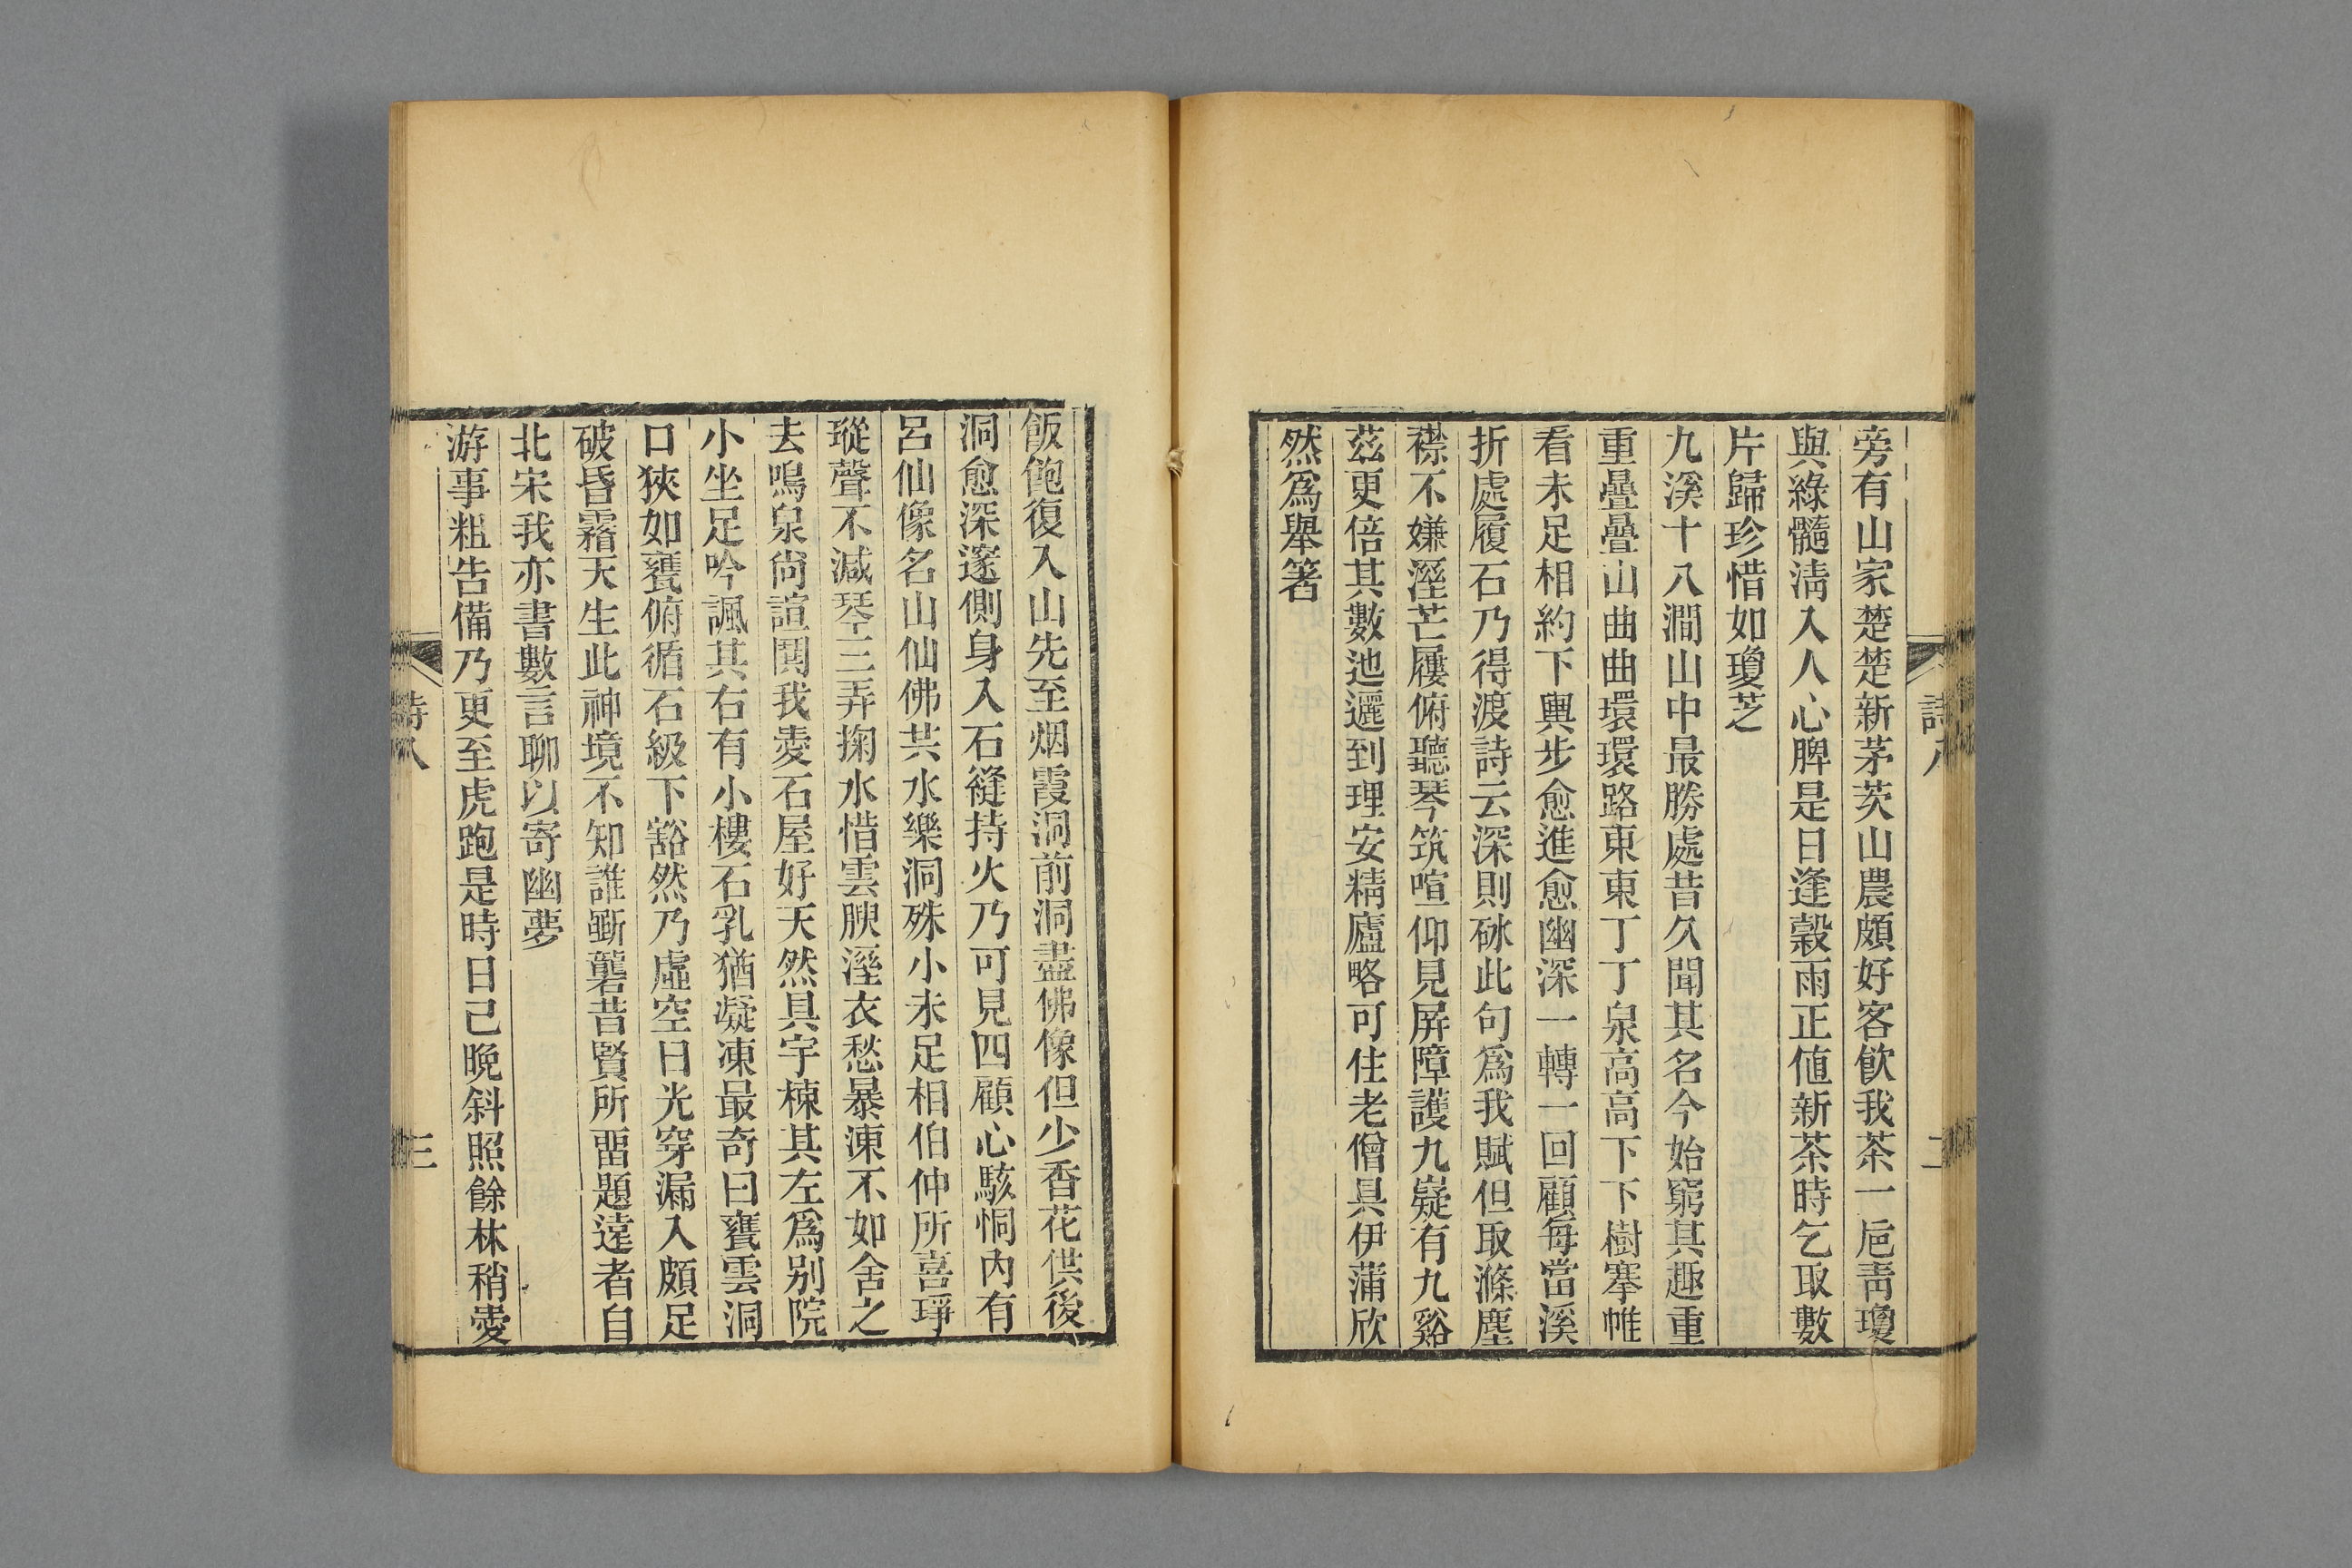 旁有山家楚楚新茅茨山農頗好客飲我茶一巵靑瓊
與綠髓淸入人心脾是日逢穀雨正値新茶時乞取數
片歸珍惜如瓊芝
九溪十八澗山中最勝處昔久聞其名今始窮其趣重
重疊疊山曲曲環環路東東丁丁泉高高下下樹搴帷
看未足相約下輿步愈進愈幽深一轉一回顧每當溪
折處履石乃得渡詩云深則砅此句爲我賦但取滌塵
襟不嫌溼芒屨俯聽琴筑喧仰見屏障護九嶷有九谿
茲更倍其數迆邐到理安精廬略可住老僧具伊蒲欣
然爲舉箸
詩八
二
飯飽復入山先至烟霞洞前洞盡佛像但少香花供後
洞愈深邃側身入石縫持火乃可見四顧心駭恫內有
呂仙像名山仙佛共水樂洞殊小未足相伯仲所喜琤
瑽聲不減琴三弄掬水惜雲腴溼衣愁暴涷不如舍之
去鳴泉尙諠鬨我愛石屋好天然具宇棟其左爲別院
小坐足吟諷其右有小樓石乳猶凝凍最奇曰甕雲洞
口狹如甕俯循石級下豁然乃虛空日光穿漏入頗足
破昏霿天生此神境不知誰斲礱昔賢所畱題遠者自
北宋我亦書數言聊以寄幽夢
游事粗告備乃更至虎跑是時日已晚斜照餘林稍愛
詩八
三